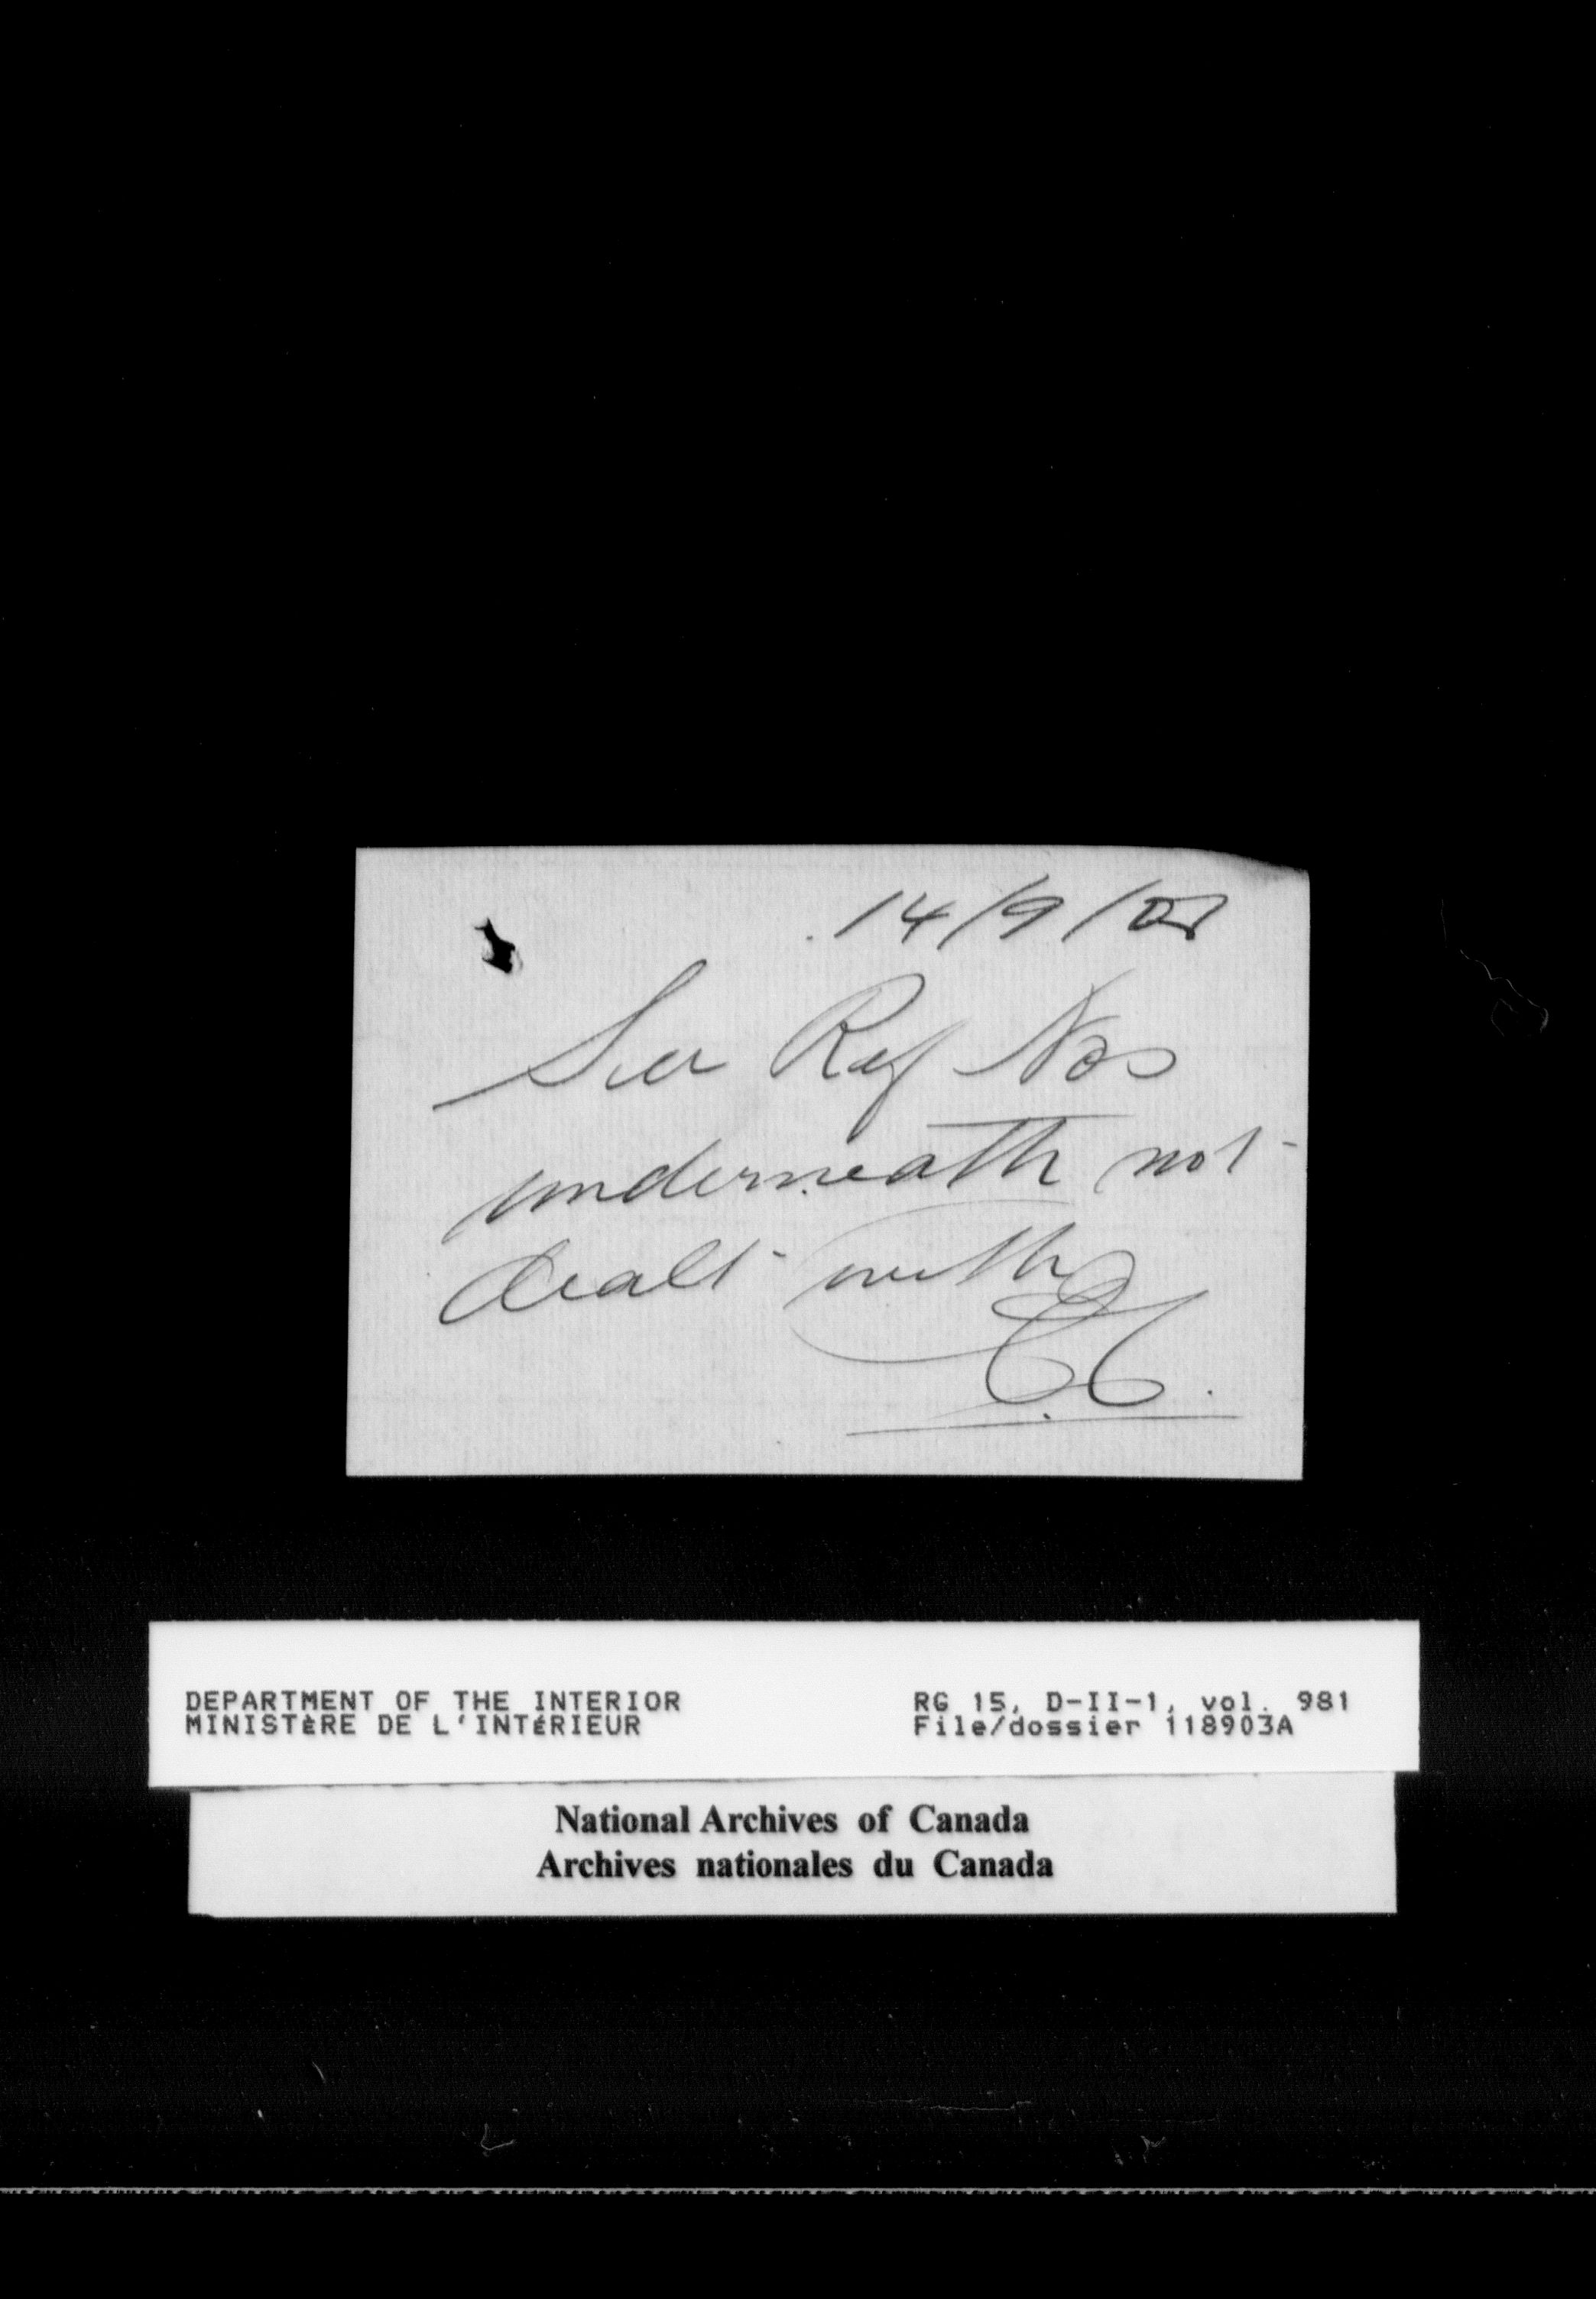 14/9/08
See Ref Nos
underneath not
dealt with
DEPARTMENT OF THE INTERIOR
MINISTÈRE DE L'INTÉRIEUR
RG 15, D-II-1, vol. 981
File/dossier 118903A
National Archives of Canada
Archives nationales du Canada